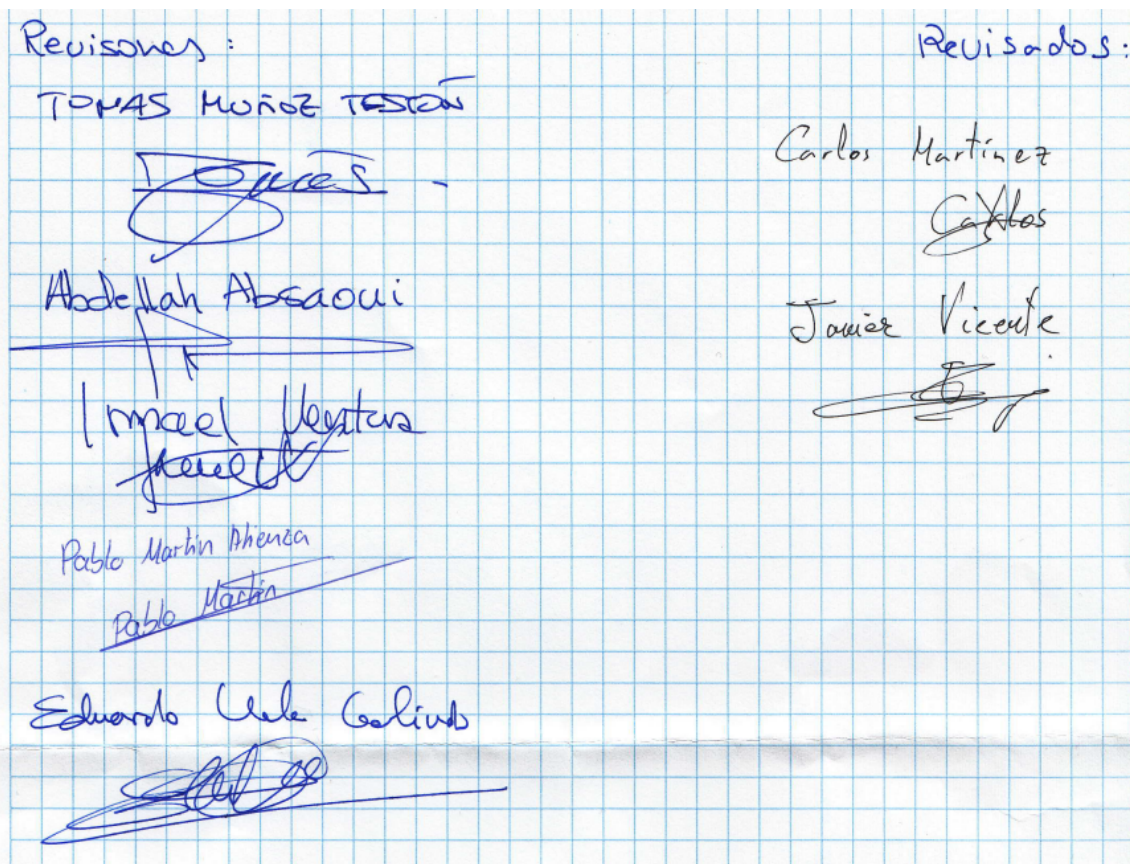 Revisores:
TOMAS MUÑOZ TESTÓN
Tomás
Abdellah Absaoui
Ismael Ventura
Ismael V
Pablo Martín Atienza
Pablo Martín
Eduardo Galindo
Revisados:
Carlos Martínez
Carlos
Javier Vicente